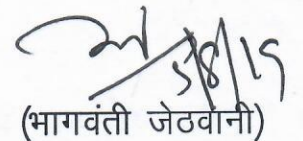 5/8/15
(भागवंती जेठवानी)